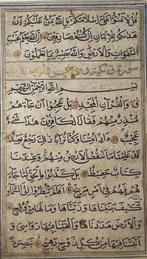 لا تمنوا علي اسلامكم بل الله يمن عليكم ان
هديكم للايمان ان كنتم صادقين ان الله يعلم غيب
السموات والارض والله بصير بما تعملون
سورة ق
بسم الله الرحمن الرحيم
ق والقرآن المجيد بل عجبوا ان جاءهم
منذر منهم فقال الكافرون هذا شيء
عجيب ءاذا متنا وكنا ترابا ذلك رجع بعيد
قد علمنا ما تنقص الارض منهم وعندنا
كتاب حفيظ بل كذبوا بالحق لما جاءهم
فهم في امر مريج افلم ينظروا الى السماء فوقهم
كيف بنيناها وزيناها وما لها من فروج
والارض مددناها والقينا فيها رواسي و
انبتنا فيها من كل زوج بهيج